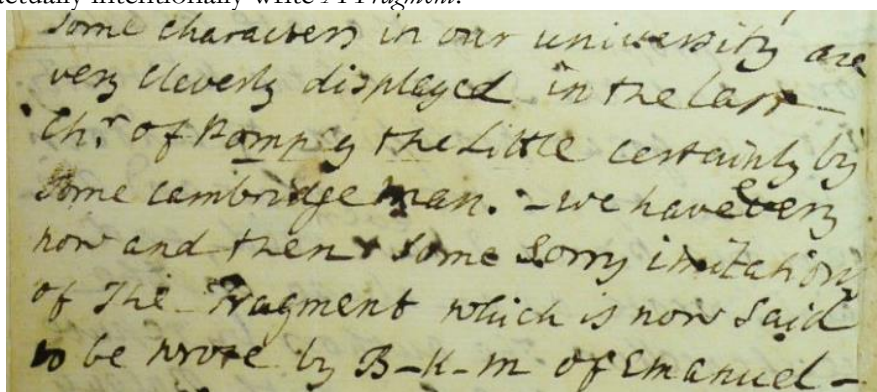 actually intentionally write A Fragment.
Some characters in our university are
very cleverly displayed in the last
Ch.r of Pompey the Little certainly by
some cambridge man. - we have every
now and then some Sorry imitations
of The Fragment which is now said
to be wrote by B-k-m of Emanuel -